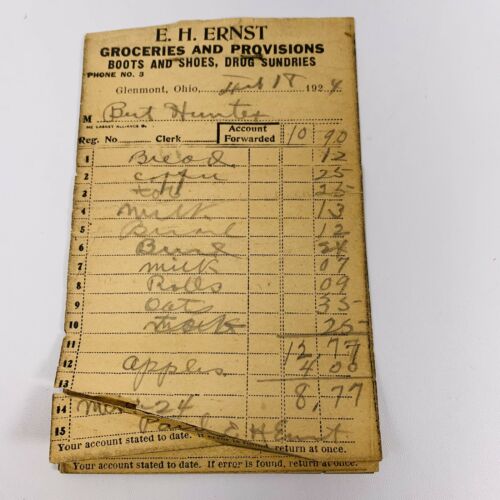 E. H. ERNST
GROCERIES AND PROVISIONS
BOOTS AND SHOES, DRUG SUNDRIES
PHONE NO. 3
Glenmont, Ohio, 18 1924
M Bert Hunter
Reg. No. Clerk Account Forwarded 10 90
1 Bread 12
2 Coffee 25
3 25
4 Milk 13
5 Bread 12
6 Bread 24
7 Milk 07
8 Rolls 09
9 Oats 35
10 25
11 12,77
12 apples 4 00
13 8,77
14 24
15 Paid E H Ernst
Your account stated to date. If error is found, return at once.
Your account stated to date. If error is found, return at once.